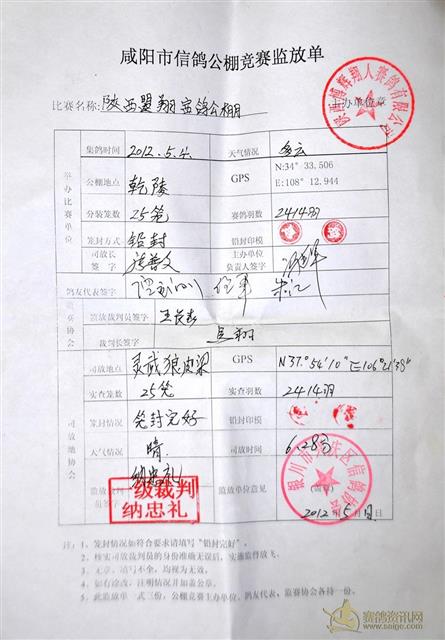 咸阳市信鸽公棚竞赛监放单
比赛名称: 陕西盟翔赛鸽公棚 主办单位章
举办比赛单位
集鸽时间 2012.5.4 天气情况 多云
公棚地点 乾陵 GPS N:34° 33.506 E:108° 12.944
分装笼数 25笼 赛鸽羽数 2414羽
笼封方式 铅封 铅封印模
司放长签字 主办单位负责人签字
鸽友代表签字
监放裁判员签字
裁判长签字
司放地点 灵武狼皮梁 GPS N37°54'10" E106°21'38"
实笼数 25笼 实查羽数 2414羽
笼封情况 笼封完好 铅封印模
司放地协会
天气情况 晴. 司放时间 6.28分
纳忠礼
监放单位意见 (盖章)
2012年5月 日
一级裁判
纳忠礼
注: 1、笼封情况如符合要求请填写"铅封完好"。
2、核实司放裁判员的身份准确无误后, 实施监督放飞。
3、无章、填写不全, 均视为无效。
4、如有涂改, 注明情况并加盖公章。
5、此监放单一式三份, 公棚竞赛主办单位、鸽友代表、监放协会各持一份。
赛鸽资讯网
www.saige.com